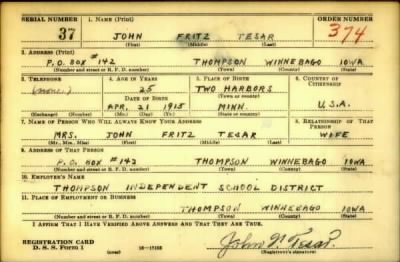 SERIAL NUMBER 1. NAME (Print) ORDER NUMBER
37 JOHN FRITZ TESAR 374
(First) (Middle) (Last)
2. ADDRESS (Print)
P.O. BOX #142 THOMPSON WINNEBAGO IOWA
(Number and street or R. F. D. number) (Town) (County) (State)
3. TELEPHONE 4. AGE IN YEARS 5. PLACE OF BIRTH 6. COUNTRY OF CITIZENSHIP
(none) 25 TWO HARBORS
DATE OF BIRTH (Town or county)
APR. 21 1915 MINN. U.S.A.
(Exchange) (Number) (Mo.) (Day) (Yr.) (State or country)
7. NAME OF PERSON WHO WILL ALWAYS KNOW YOUR ADDRESS 8. RELATIONSHIP OF THAT PERSON
MRS. JOHN FRITZ TESAR WIFE
(Mr., Mrs., Miss) (First) (Middle) (Last)
9. ADDRESS OF THAT PERSON
P.O. BOX #142 THOMPSON WINNEBAGO IOWA
(Number and street or R. F. D. number) (Town) (County) (State)
10. EMPLOYER'S NAME
THOMPSON INDEPENDENT SCHOOL DISTRICT
11. PLACE OF EMPLOYMENT OR BUSINESS
THOMPSON WINNEBAGO IOWA
(Number and street or R. F. D. number) (Town) (County) (State)
I AFFIRM THAT I HAVE VERIFIED ABOVE ANSWERS AND THAT THEY ARE TRUE.
REGISTRATION CARD John Tesar
D. S. S. Form 1 (over) (Registrant's signature)